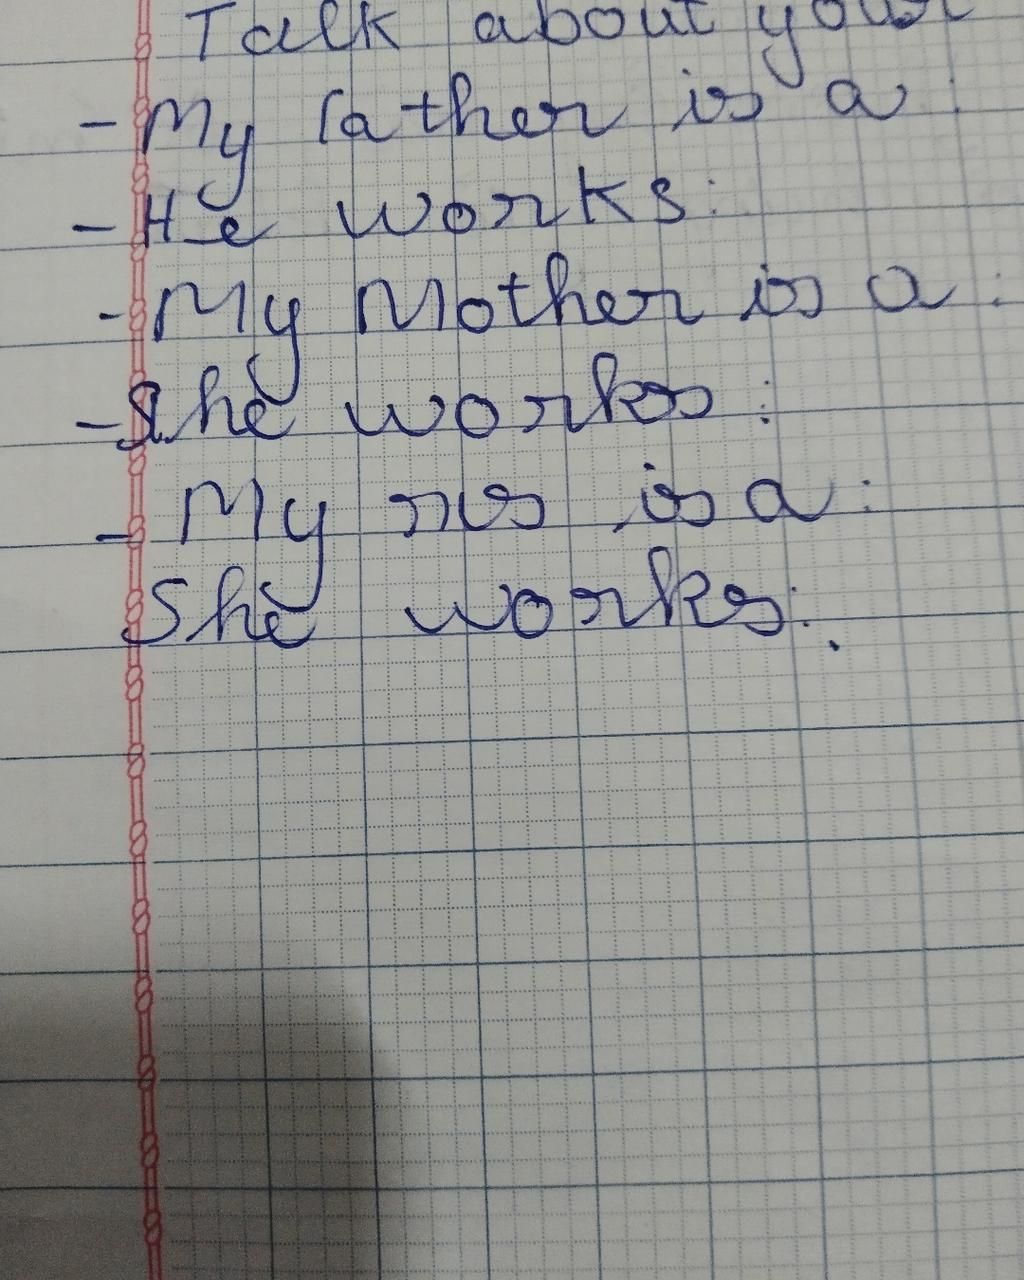 Talk about your
- My father is a :
- He works :
- My Mother is a :
- She works :
- My sis is a :
She works :.